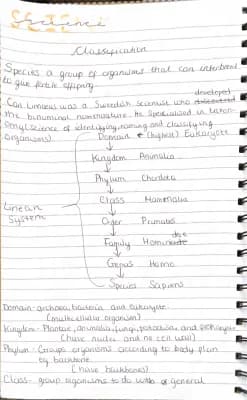 Science
Classification
Species a group of organisms that can interbreed
to give fertile offspring
Carl Linneus was a Swedish scientist who developed
the binuminal nomenclature. He specialised in taxon-
omy (science of identifying, naming and classifying
organisms)
Domain (highest) Eukaryote
Kingdom Animalia
Phylum Chordata
Class Mammalia
Order Primates
Linean
System
Family
Genus Homo
Species Sapiens
Domain - archaea, bacteria and eukaryote
(multicellular organism)
Kingdom - Plantae, animalia, fungi, protoctista and prokaryote
(have nuclei and no cell wall)
Phylum - Groups organisms according to body plan
eg backbone
(have backbones)
Class - group organisms to do with a general